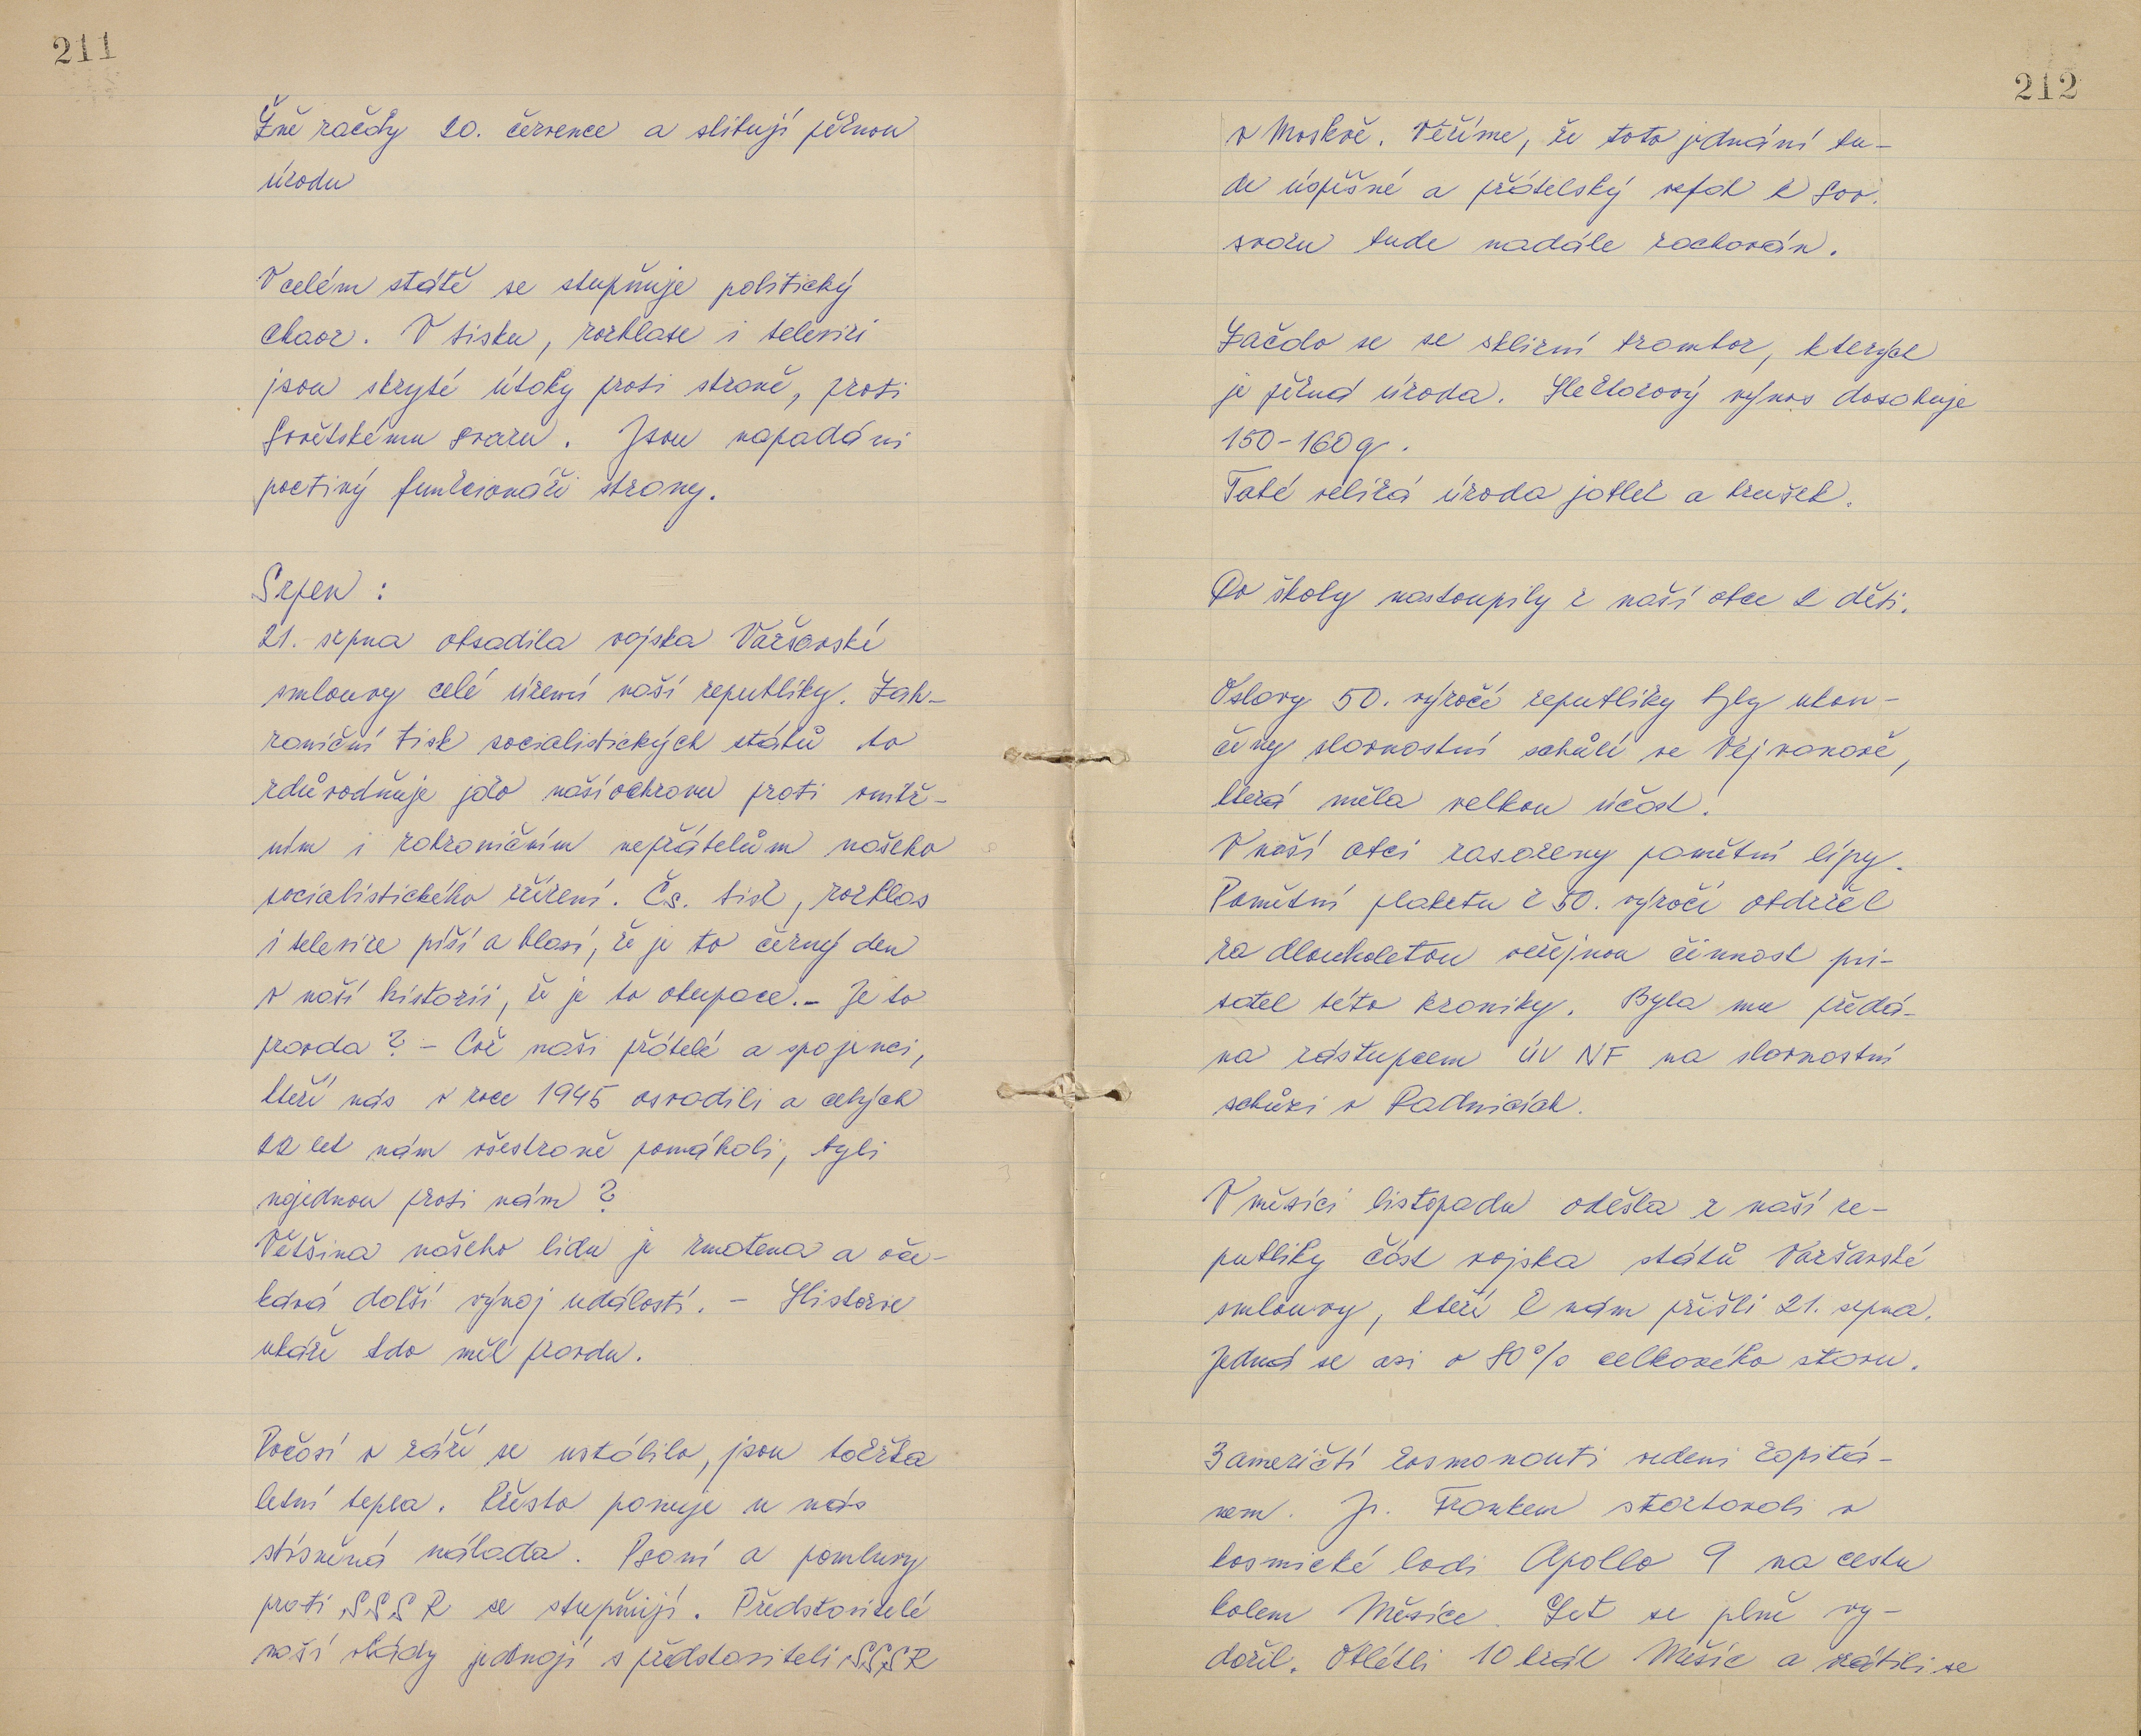 211
Žně začaly 20. července a slibují pěknou
úrodu
V celém státě se stupňuje politický
chaos. V tisku, rozhlase i televizi
jsou skryté útoky proti straně, proti
Sovětskému svazu. Jsou napadáni
poctivý funkcionáři strany.
Srpen :
21. srpna obsadila vojska Varšavské
smlouvy celé území naší republiky. Zah-
raniční tisk socialistických států to
zdůvodňuje jako naší ochranu proti vnitř-
ním i zahraničním nepřátelům našeho
socialistického zřízení. Čs. tisk, rozhlas
i televize píší a hlasí, že je to černý den
v naší historii, že je to okupace. - Je to
pravda ? - Což naši přátelé a spojenci,
kteří nás v roce 1945 osvodili a celých
22 let nám všestraně pomáhali, byli
najednou proti nám ?
Většina našeho lidu je zmatena a oče-
kává další vývoj událostí. - Historie
ukáže kdo měl pravdu.
Počasí v září se ustálilo, jsou takřka
letní tepla. Přesto panuje u nás
stísněná nálada. Psaní a pomluvy
proti SSSR se stupňují. Představitelé
naší vlády jednají s představiteli SSSR
212
v Moskvě. Věříme, že toto jednání bu-
de úspěšné a přátelský vztah k Sov.
svazu bude nadále zachován.
Začalo se se sklizní brambor, kterých
je pěkná úroda. Hektarový výnos dosahuje
150-160 q.
Také veliká úroda jablek a hrušek.
Do školy nastoupily z naší obce 2 děti.
Oslavy 50. výročí republiky byly ukon-
čeny slavnostní schůzí ve Vejvanově,
která měla velkou účast.
V naší obci zasazeny pamětní lípy.
Pamětní plaketu k 50. výročí obdržel
za dlouholetou veřejnou činnost pi-
satel této kroniky. Byla mu předá-
na zástupcem ÚV NF na slavnostní
schůzi v Radnicích.
V měsíci listopadu odešla z naší re-
publiky část vojska států Varšavské
smlouvy, kteří k nám přišli 21. srpna.
Jedná se asi o 80% celkového stavu.
3 američtí kosmonauti vedeni kapitá-
nem. Jr. Frankem startovali v
kosmické lodi Apollo 9 na cestu
kolem Měsíce. Let se plně vy-
dařil. Oblétli 10 krát Měsíc a vrátili se